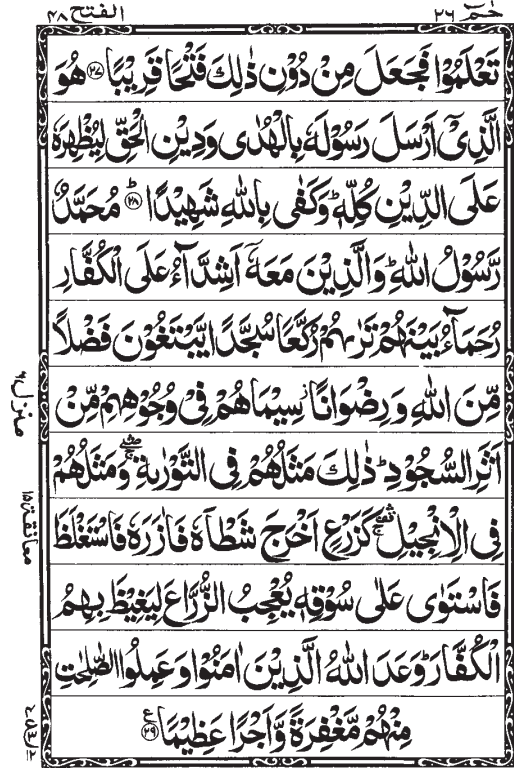 حٰمٓ ۲۶
الفتح ۴۸
تَعْلَمُوْا فَجَعَلَ مِنْ دُوْنِ ذٰلِكَ فَتْحًا قَرِيْبًا ﴿۲۷﴾ هُوَ
الَّذِیْۤ اَرْسَلَ رَسُوْلَهٗ بِالْهُدٰی وَدِيْنِ الْحَقِّ لِيُظْهِرَهٗ
عَلَی الدِّيْنِ كُلِّهٖ ؕ وَكَفٰی بِاللّٰهِ شَهِيْدًا ﴿۲۸﴾ؕ مُحَمَّدٌ
رَّسُوْلُ اللّٰهِ ؕ وَالَّذِيْنَ مَعَهٗۤ اَشِدَّآءُ عَلَی الْكُفَّارِ
رُحَمَآءُ بَيْنَهُمْ تَرٰىهُمْ رُكَّعًا سُجَّدًا يَّبْتَغُوْنَ فَضْلًا
مِّنَ اللّٰهِ وَرِضْوَانًا ؗ سِيْمَاهُمْ فِیْ وُجُوْهِهِمْ مِّنْ
اَثَرِ السُّجُوْدِ ؕ ذٰلِكَ مَثَلُهُمْ فِی التَّوْرٰىةِ ۛۖۚ وَمَثَلُهُمْ
فِی الْاِنْجِيْلِ ۛ۫ۚ كَزَرْعٍ اَخْرَجَ شَطْاَهٗ فَاٰزَرَهٗ فَاسْتَغْلَظَ
فَاسْتَوٰی عَلٰی سُوْقِهٖ يُعْجِبُ الزُّرَّاعَ لِيَغِيْظَ بِهِمُ
الْكُفَّارَ ؕ وَعَدَ اللّٰهُ الَّذِيْنَ اٰمَنُوْا وَعَمِلُوا الصّٰلِحٰتِ
مِنْهُمْ مَّغْفِرَةً وَّاَجْرًا عَظِيْمًا ﴿۲۹﴾ع
معانقة ۱۵